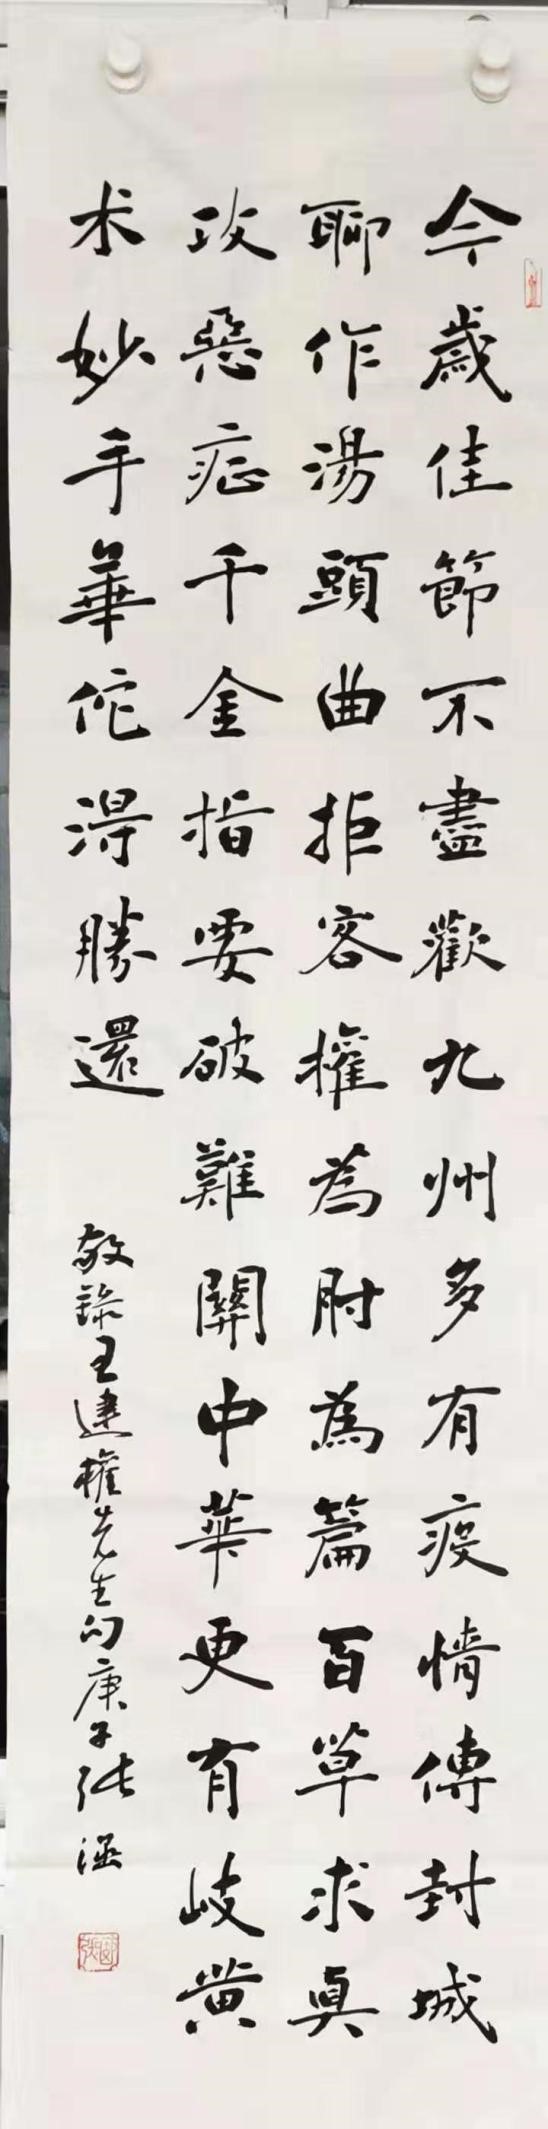 今歲佳節不盡歡九州多有疫情傳封城
聊作湯頭曲拒客權為肘為篇百草求真
攻惡疝千金指要破難關中華更有岐黄
术妙手華佗淂勝還
敬錄王建權先生句庚子張涵